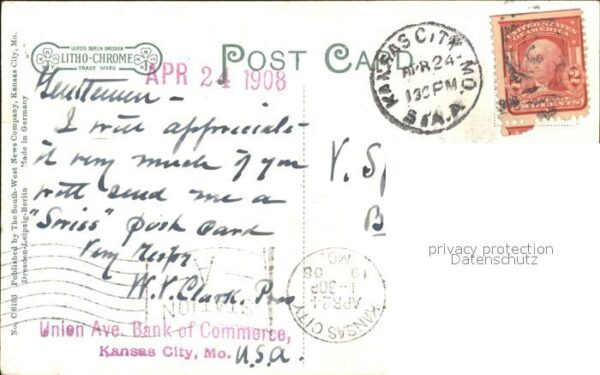 No. C6103 Published by The South-West News Company, Kansas City, Mo.
Dresden-Leipzig-Berlin Made in Germany
LEIPZIG BERLIN DRESDEN
LITHO-CHROME
TRADE MARK
POST CARD
APR 24 1908
KANSAS CITY, MO.
APR 24
130 PM
STA. A
UNITED STATES
OF AMERICA
2
CENTS
Gentlemen –
I will appreciate
it very much if you
will send me a
"Swiss" post card
Very Respy
W. V. Clark. Pres
Union Ave. Bank of Commerce,
Kansas City, Mo. U.S.A.
V. Sp
B
STATION
A
KANSAS CITY
APR 24
1-30P
19 08
MO.
privacy protection
Datenschutz